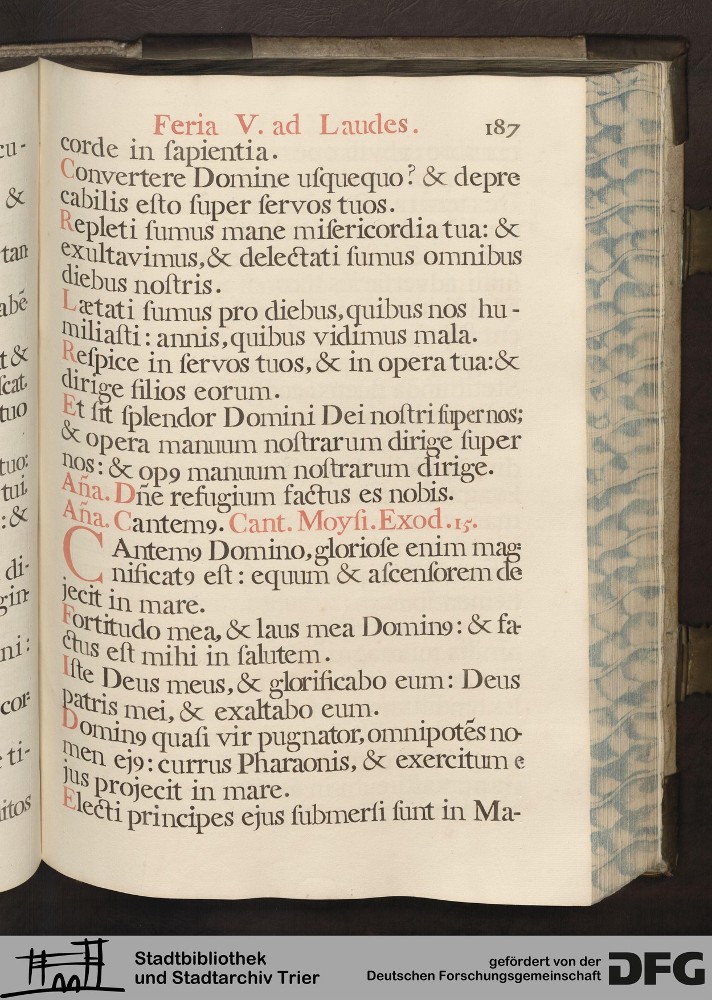 Feria V. ad Laudes. 187
corde in ſapientia.
Convertere Domine uſquequo? & depre
cabilis eſto ſuper ſervos tuos.
Repleti ſumus mane miſericordia tua: &
exultavimus, & delectati ſumus omnibus
diebus noſtris.
Lætati ſumus pro diebus, quibus nos hu-
miliaſti: annis, quibus vidimus mala.
Reſpice in ſervos tuos, & in opera tua: &
dirige filios eorum.
Et ſit ſplendor Domini Dei noſtri ſuper nos;
& opera manuum noſtrarum dirige ſuper
nos: & opꝰ manuum noſtrarum dirige.
Aña. Dñe refugium factus es nobis.
Aña. Cantemꝰ. Cant. Moyſi. Exod. 15.
CAntemꝰ Domino, glorioſe enim mag-
nificatꝰ eſt: equum & aſcenſorem de
jecit in mare.
Fortitudo mea, & laus mea Dominꝰ: & fa-
ctus eſt mihi in ſalutem.
Iſte Deus meus, & glorificabo eum: Deus
patris mei, & exaltabo eum.
Dominꝰ quaſi vir pugnator, omnipotēs no-
men ejꝰ: currus Pharaonis, & exercitum e
jus projecit in mare.
Electi principes ejus ſubmerſi ſunt in Ma-
cu-
&
tan
abē
t &
ſcat
tuo
tuo:
tui.
: &
di-
gin-
ni:
cor-
ti-
itos
Stadtbibliothek
und Stadtarchiv Trier
gefördert von der
Deutschen Forschungsgemeinschaft
DFG